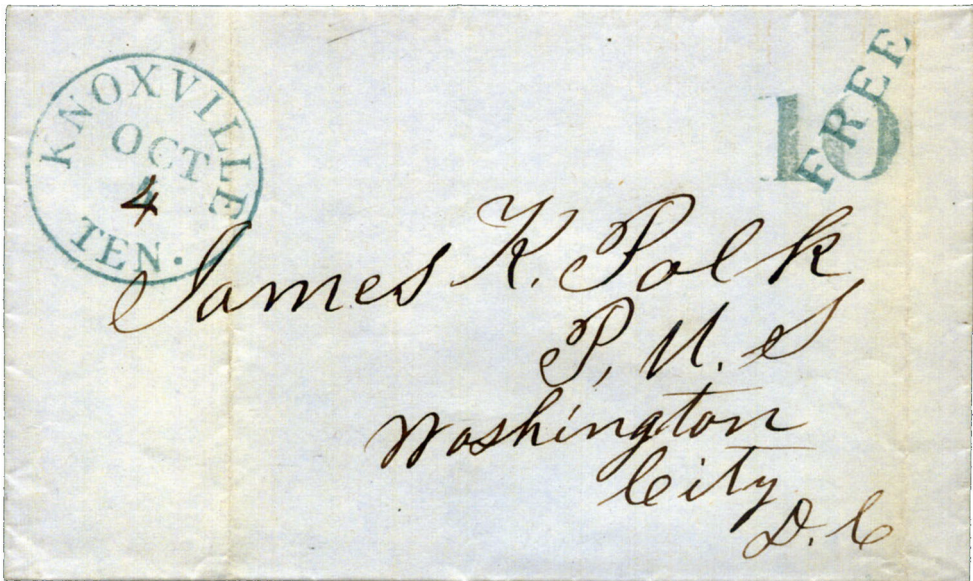 KNOXVILLE
OCT
4
TEN.
10
FREE
James K. Polk
P, U. S
Washington
City
D. C